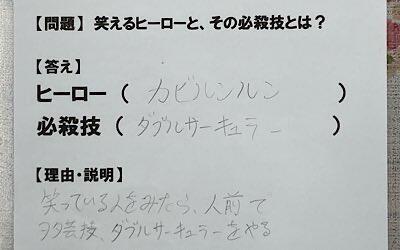 【問題】 笑えるヒーローと、その必殺技とは？
【答え】
ヒーロー （ カビルンルン ）
必殺技 （ ダブルサーキュラー ）
【理由・説明】
笑っている人をみたら、人前で
ヲタ芸技、ダブルサーキュラーをやる